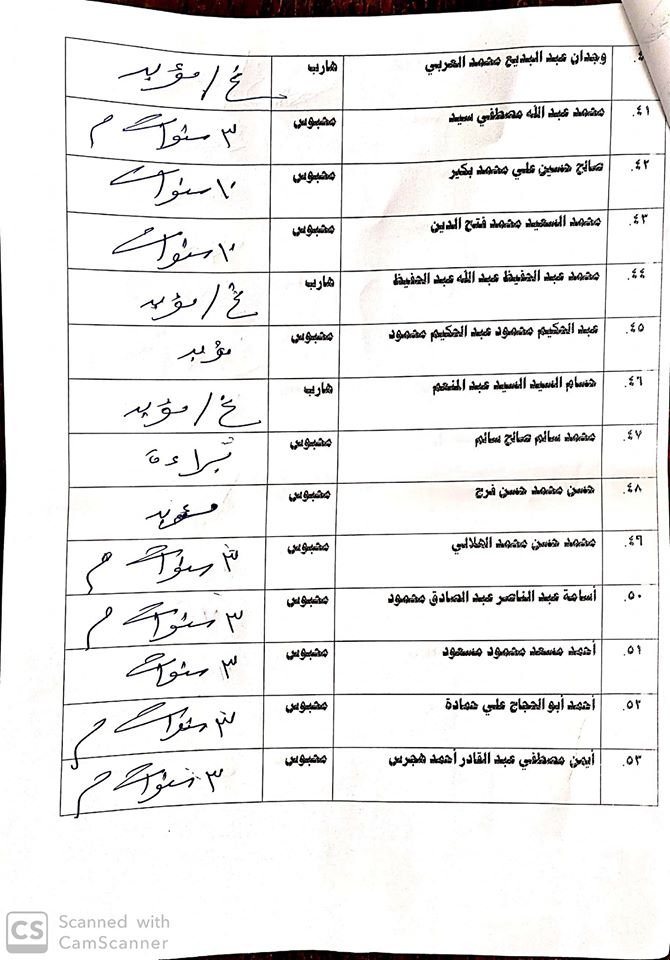 وجدان عبد البديع محمد العربي هارب غ / مؤبد
٤١. محمد عبد الله مصطفي سيد محبوس ٣ سنوات م
٤٢. صالح حسين علي محمد بكير محبوس ١٠ سنوات
٤٣. محمد السعيد محمد فتح الدين محبوس ١٠ سنوات
٤٤. محمد عبد الحفيظ عبد الله عبد الحفيظ هارب غ / مؤبد
٤٥. عبد الحكيم محمود عبد الحكيم محمود محبوس مؤبد
٤٦. حسام السيد السيد عبد المنعم هارب غ / مؤبد
٤٧. محمد سالم صالح سالم محبوس براءة
٤٨. حسن محمد حسن فرج محبوس مؤبد
٤٩. محمد حسن محمد الهلالي محبوس ٣ سنوات م
٥٠. أسامة عبد الناصر عبد الصادق محمود محبوس ٣ سنوات م
٥١. أحمد مسعد محمود مسعود محبوس ٣ سنوات
٥٢. أحمد أبو الحجاج علي حمادة محبوس ٣ سنوات م
٥٣. أيمن مصطفي عبد القادر أحمد هجرس محبوس ٣ سنوات م
CS Scanned with
CamScanner